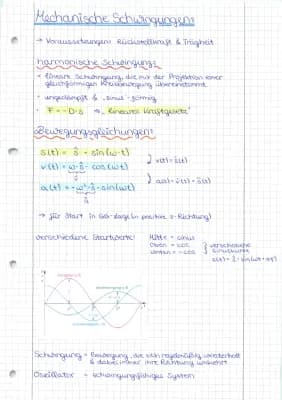 Mechanische Schwingungen:
→ Voraussetzungen: Rückstellkraft & Trägheit
harmonische Schwingung:
• lineare Schwingung, die mit der Projektion einer
gleichförmigen Kreisbewegung übereinstimmt
• ungedämpft & sinus-förmig
• F = -D·s ⇒ "lineares Kraftgesetz"
Bewegungsgleichungen:
s(t) = ŝ · sin(ω·t)
v(t) = ω·ŝ · cos(ω·t)
v(t) = ṡ(t)
a(t) = -ω²·ŝ·sin(ω·t)
a(t) = v̇(t) = s̈(t)
→ für Start in GG-Lage (in positive s-Richtung)
verschiedene Startwerte:
Mitte = sinus
Oben = cos
unten = -cos
verschobene
sinuskurve
Schwingung = Bewegung, die sich regelmäßig wiederholt
& dabei immer ihre Richtung umkehrt
Oszillator = schwingungsfähiges System